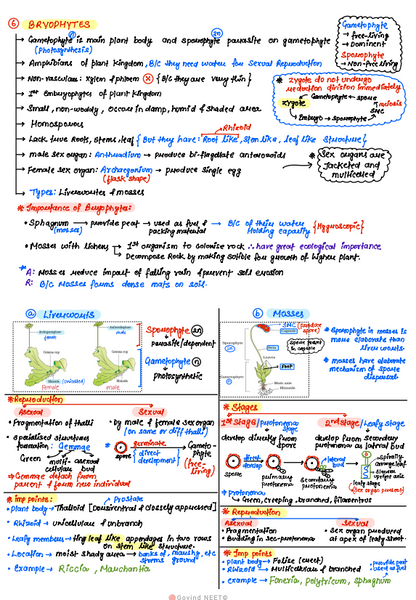 ⑥ BRYOPHYTES
Gametophyte is main plant body and sporophyte parasite on gametophyte
(Photosynthesis)
Amphibians of plant kingdom, B/c they need water for Sexual Reproduction
Non-vascular: xylem & phloem ⊗ { B/c they are very thin }
1st Embryophytes of plant kingdom
Small, non-woddy, occurs in damp, humid & shaded area
Homosporous
Rhizoid
Lack true Roots, stems, leaf { But they have: Root like, Stem like, leaf like structure }
male sex organ: Antheridium → produce bi-flagellate antherozoids
Female sex organ: Archegonium → produce single egg
(flask shape)
Types: Liverworts & mosses
Gametophyte
→ free-living
→ Dominent
Sporophyte
→ Non-free living
* zygote do not undergo
reduction division immediately
Gametophyte ← spore
zygote
meiosis
SMC
Embryo → Sporophyte
* Sex organs are
Jacketed and
multicelled
* Importance of Bryophytes:
• Sphagnum → provide peat → used as fuel & packing material → B/C of their water Holding capacity { Hygroscopic }
(mosses)
• Mosses with lichens → 1st organism to colonise rock ∴ have great ecological importance
→ Decompose Rock by making soible for growth of higher plant.
* A: Mosses reduce impact of falling rain & prevent soil erosion
R: B/c Mosses forms dense mats on soil.
ⓐ Liverworts
Sporophyte 2n
parasite/dependent
Gametophyte n
photosynthetic
Female
male
ⓑ Mosses
SMC
* Sporophyte in mosses is more elaborate than liverworts.
* mosses have elaborate mechanism of spore dispersal
* Reproduction
Asexual
• Fragmentation of thalli
• specialised structures formation: Gemmae
Green
multi-cellular asexual bud
→ Gemmae detach from parent & form new individual
Sexual
• by male & female sex organ
(on same or diff thalli)
spore germinate (direct development) Gametophyte (free-living)
* Imp points:
Prostate
• Plant body → Thalloid [dorsiventral & closely appressed]
• Rhizoid → unicellular & unbranch
• Leafy members → tiny leaf like appendages in two rows on stem like structure
• Location → moist shady area → banks of, marshy, etc
• Example → Riccia, Marchantia
* Stages
1st stage/protonema stage
develop directly from spore
2nd stage/Leafy stage
develop from Secondary protonema as lateral bud
spore
direct develop
primary protonema
Secondary protonema
lateral bud
leafy stage
(sex organ produce)
* Protonema
→ Green, creeping, branched, filamentous
* Reproduction
Asexual
• Fragmentation
• Budding in sec-protonema
Sexual
• Sex organ produced at apex of leafy shoot
* Imp points
• plant body → Foliose (erect)
• Rhizoid → Multicellular & branched
• example → Funaria, polytricum, sphagnum
© Govind NEET©